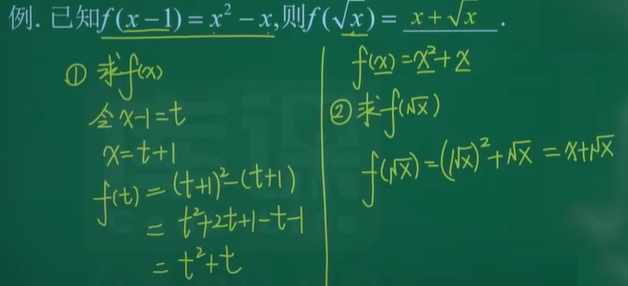 例. 已知f(x-1)=x²-x,则f(√x)= x+√x .
① 求f(x)
令x-1=t
x=t+1
f(t)=(t+1)²-(t+1)
=t²+2t+1-t-1
=t²+t
f(x)=x²+x
② 求f(√x)
f(√x)=(√x)²+√x=x+√x